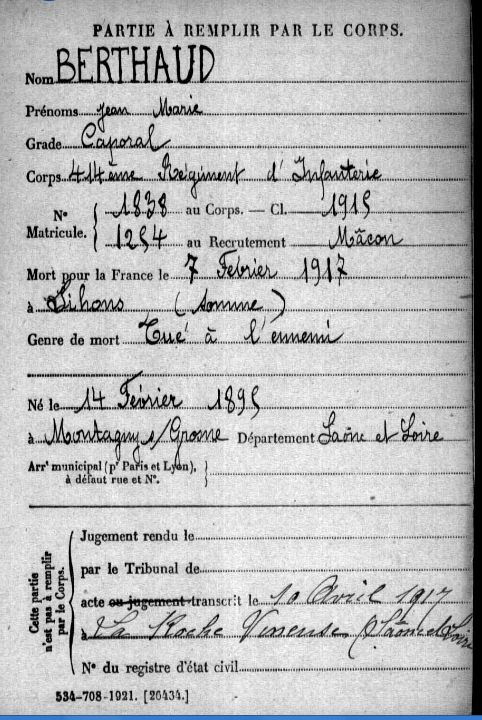 PARTIE À REMPLIR PAR LE CORPS.
Nom BERTHAUD
Prénoms Jean Marie
Grade Caporal
Corps 414ème Régiment d'Infanterie
N° Matricule. 1838 au Corps. — Cl. 1915
1254 au Recrutement Mâcon
Mort pour la France le 7 Février 1917
à Lihons (Somme)
Genre de mort Tué à l'ennemi
Né le 14 Février 1895
à Montagny s/Grosne Département Saône et Loire
Arrᵗ municipal (pʳ Paris et Lyon),
à défaut rue et N°.
Cette partie n'est pas à remplir par le Corps.
Jugement rendu le
par le Tribunal de
acte ou jugement transcrit le 10 Avril 1917
à La Roche Vineuse (Saône et Loire
N° du registre d'état civil
534-708-1921. [26434.]